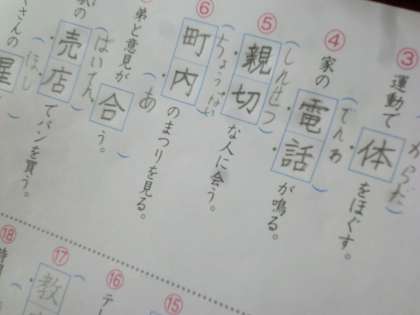 ③ 運動で体をほぐす。
からだ
④ 家の電話が鳴る。
でんわ
⑤ 親切な人に会う。
しんせつ
⑥ 町内のまつりを見る。
ちょうない
弟と意見が合う。
あ
売店でパンを買う。
ばいてん
さんの星
ほし
⑮
⑯
テー
⑰
教
⑱
時間